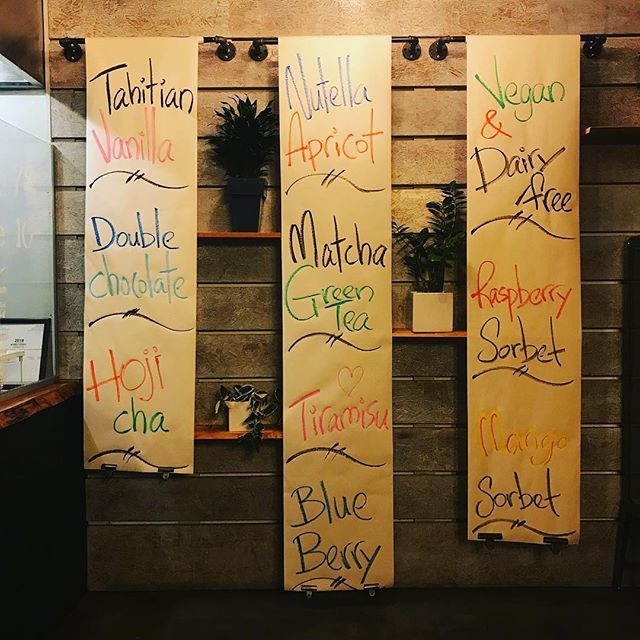 Tahitian
Vanilla
Double
chocolate
Hoji
cha
Nutella
Apricot
Matcha
Green
Tea
Tiramisu
Blue
Berry
Vegan
&
Dairy
free
Raspberry
Sorbet
Mango
Sorbet